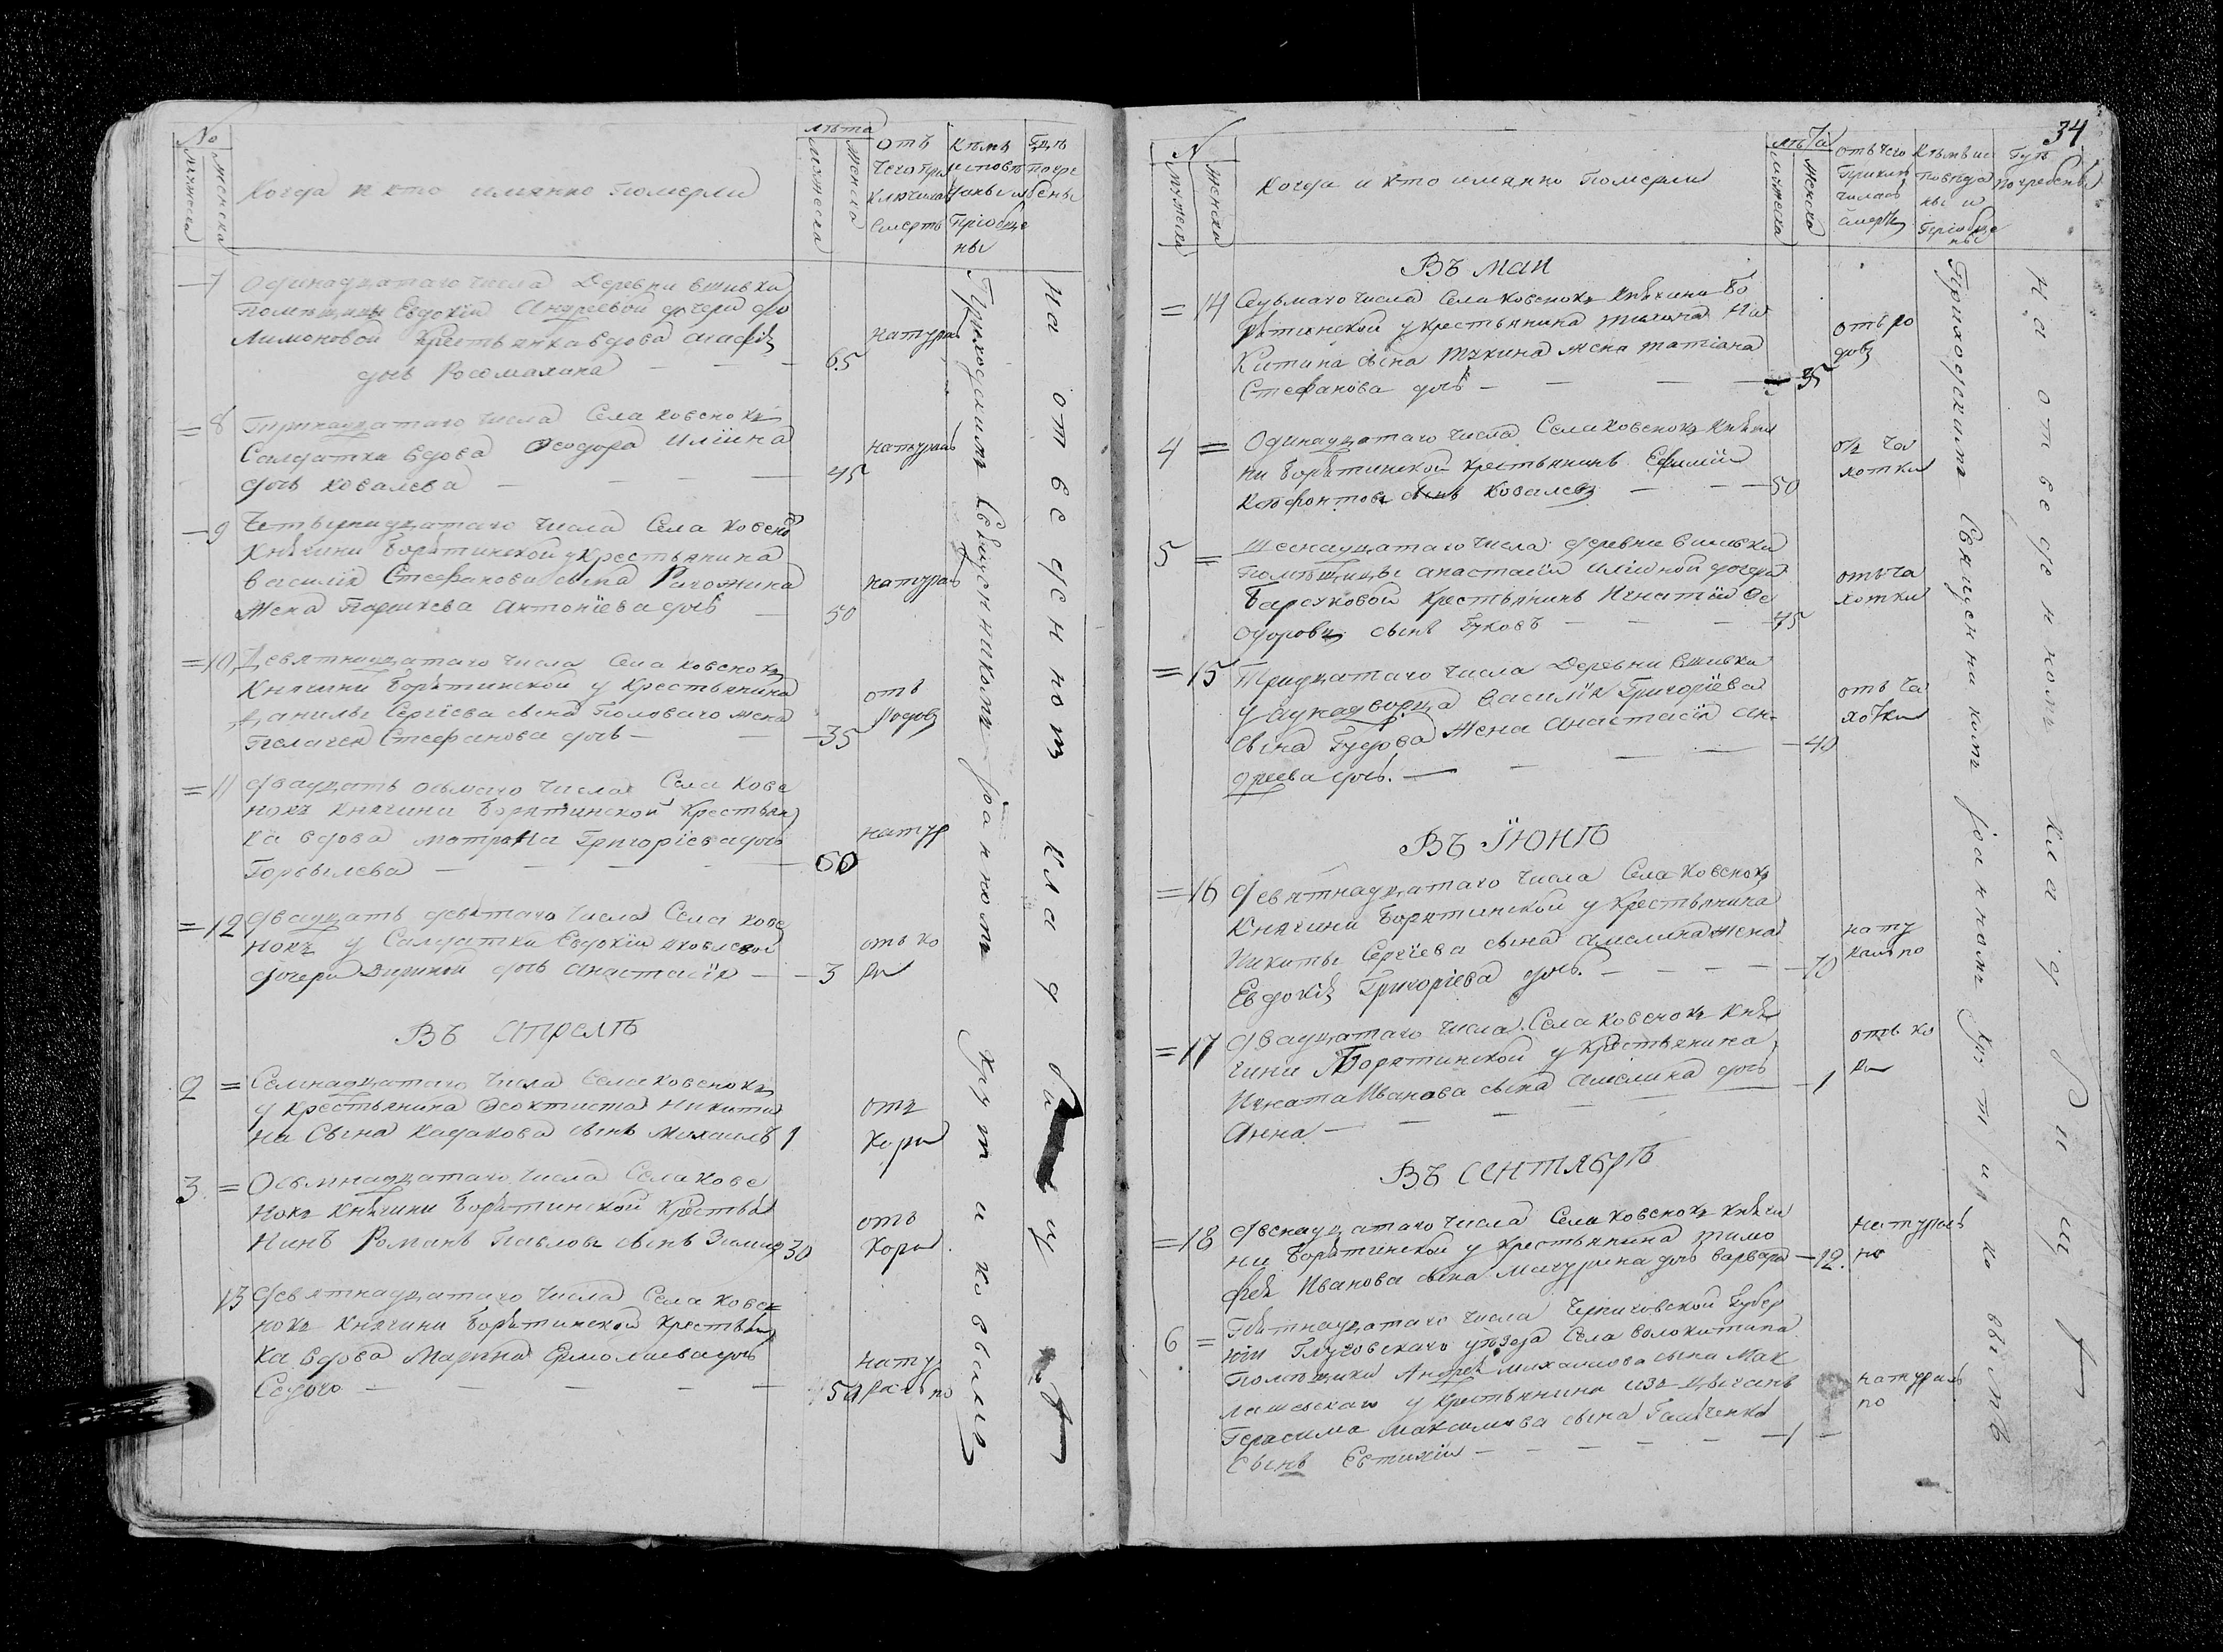 №
мужеска
женска
Когда и кто имянно Померли
лѣта
мужеска
женска
отъ
чего при
ключилась
смерть
Кѣмъ
исповѣ
даны и
Пріобще
ны
Гдѣ
погре
бены
7
Одинадцатаго числа Деревни
Помѣщицы Евдокіи Андреевой дочери Фи
лимоновой Крестьянка вдова Агафія
дочь
65
натураль
8
числа Села Ковенокъ
Салдатка вдова Ѳеодора Иліина
дочь Ковалева
45
натураль
9
числа Села Ковено
Княгини Борятинской у Крестьянина
Василія Стефанова сына Рагожина
Жена Антоніева дочь
50
натураль
10
Девятнадцатаго числа Села Ковенокъ
Княгини Борятинской у Крестьянина
Данилы Сергіева сына Половаго жена
Пелагея Стефанова дочь
35
отъ
Родовъ
11
Двадцать осьмаго числа Села Кове
нокъ Княгини Борятинской Крестьян
ка вдова Матрона Григоріева дочь
60
натур
12
Двадцать девятаго числа Села Кове
нокъ у Салдатки Евдокіи Яковлевой
дочери дочь Анастасія
3
отъ ко
ри
Въ Апрелѣ
2
Семнадцатаго числа Села Ковенокъ
у Крестьянина Ѳеоктиста Никити
на сына Кадакова сынъ Михаилъ
1
отъ
Кори
3
Осьмнадцатаго числа Села Кове
нокъ Княгини Борятинской Крестья
нинъ Романъ Павловъ сынъ
30
отъ
Кори
13
Девятнадцатаго числа Села Кове
нокъ Княгини Борятинской Крестьян
ка вдова Марина Ермолаева дочь
50
нату
рально
Приходскимъ Священникомъ Іоанномъ Крутиковымъ
На отведенномъ кладбищѣ
34
№
мужеска
женска
Когда и кто имянно Померли
лѣта
мужеска
женска
отъ чего
Приклю
чилась
смерть
Кѣмъ ис
повѣда
ны и
Пріобще
ны
Гдѣ
погребены
Въ Маи
14
Седьмаго числа Села Ковенокъ Княгини Бо
рятинской у крестьянина Ни
китина сына жена Татіана
Стефанова дочь
35
отъ ро
довъ
4
Одинадцатаго числа Села Ковенокъ Княги
ни Борятинской крестьянинъ
сынъ Ковалевъ
50
отъ ча
хотки
5
Шеснадцатаго числа деревни
Помѣщицы Анастасіи Иліиной дочери
Барсуковой Крестьянинъ Игнатій Ѳе
одоровъ сынъ Гуковъ
45
отъ ча
хотки
15
Тридцатаго числа Деревни
у Василія Григоріева
сына Гудова Жена Анастасія Ан
дреева дочь.
40
отъ ча
хотки
Въ Іюнѣ
16
Девятнадцатаго числа Села Ковенокъ
Княгини Борятинской у крестьянина
Никиты Сергіева сына Амелина жена
Евдокія Григоріева дочь.
70
нату
рально
17
Двадцатаго числа Села Ковенокъ Кня
гини Борятинской у Крестьянина
Игната Иванова сына Амелина дочь
Анна
1
отъ ко
ри
Въ Сентябрѣ
18
Двенадцатаго числа Села Ковенокъ Княги
ни Борятинской у крестьянина Тимо
фея Иванова сына Мачурина дочь Варвара
12.
натураль
но
6
Пятнадцатаго числа Черниговской Губер
ніи Глуховскаго уѣзда Села Волокитина
Помѣщика Андрея Михайлова сына Мак
лашевскаго у Крестьянина изъ цыганъ
Герасима Максимова сына
сынъ Евтихій
1
натураль
но
Приходскимъ Священникомъ Іоанномъ Крутиковымъ
На отведенномъ кладбищѣ